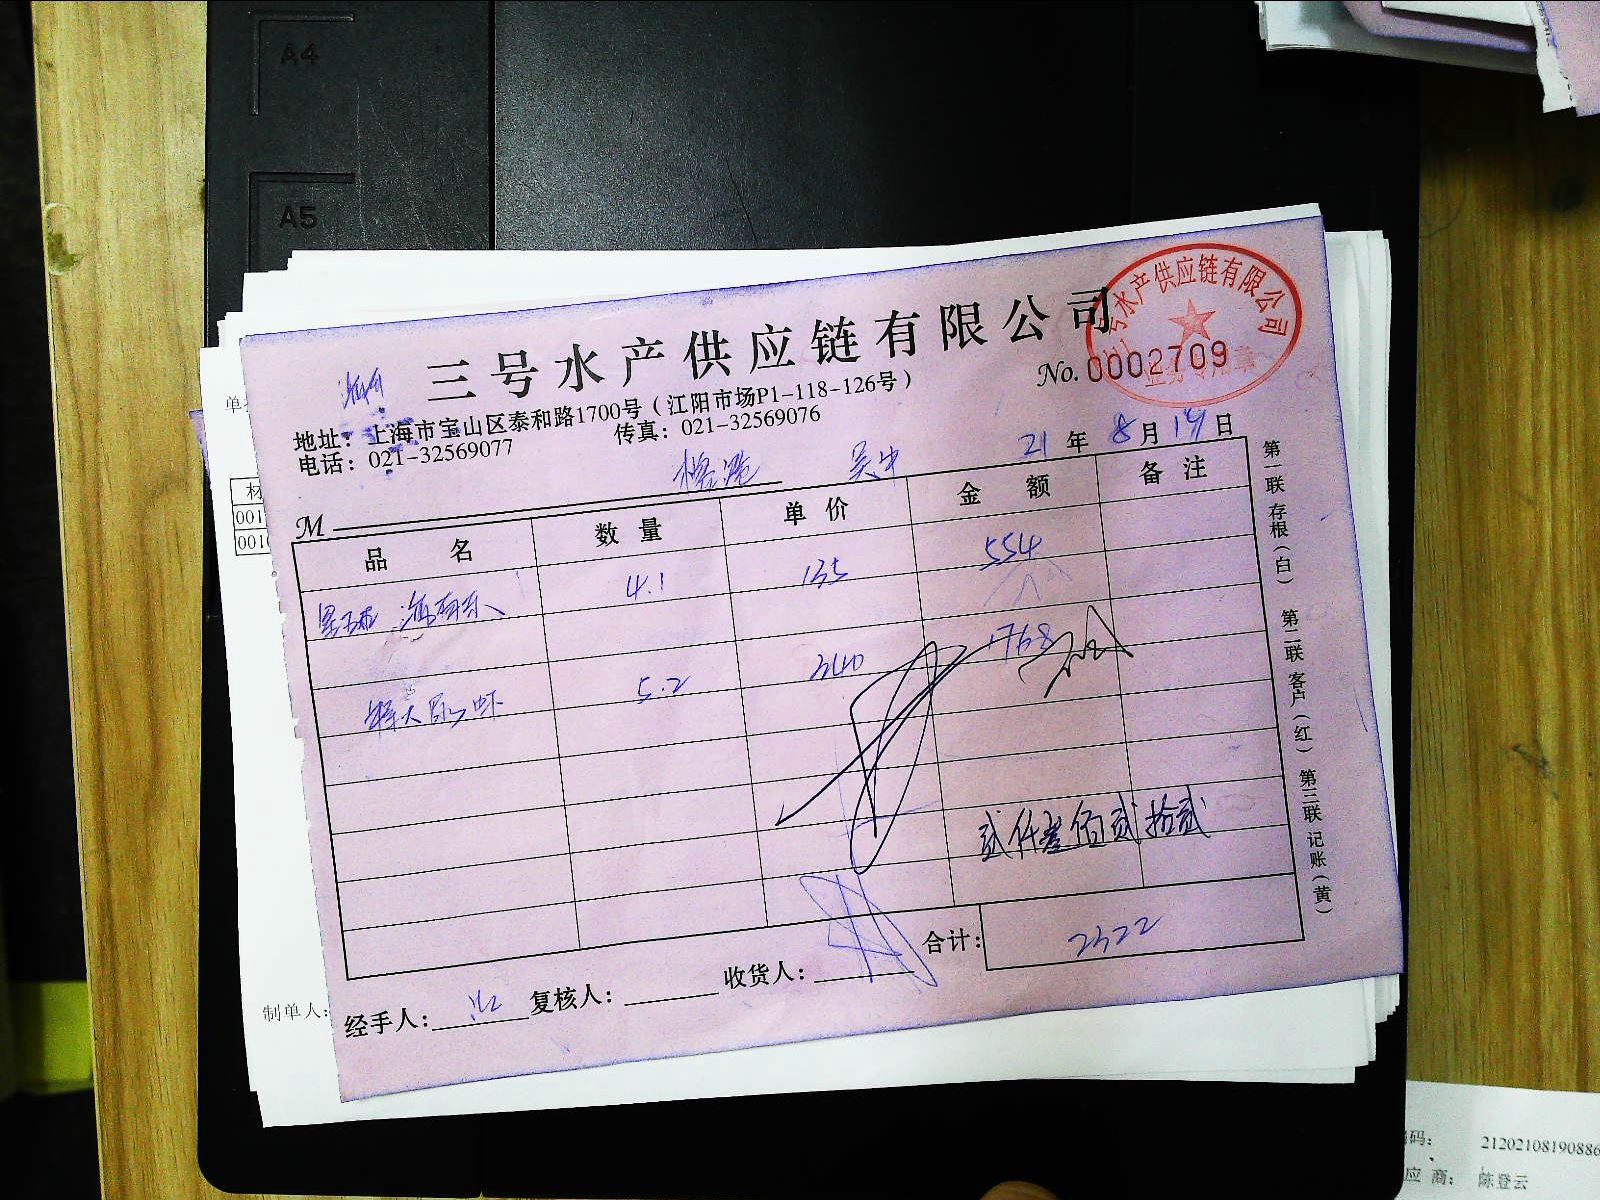 A4
A5
三号水产供应链有限公司
三号水产供应链有限公司
No. 0002709
地址：上海市宝山区泰和路1700号（江阳市场P1-118-126号）
电话：021-32569077 传真：021-32569076
21 年 8 月 19 日
吴中
M
品名 数量 单价 金额 备注
4.1 135 554
特大 虾 5.2 340 1768
贰仟叁佰贰拾贰
合计： 2322
经手人： 复核人： 收货人：
第一联 存根（白） 第二联 客户（红） 第三联 记账（黄）
单
材
001
001
制单人：
码： 21202108190886
应 商： 陈登云